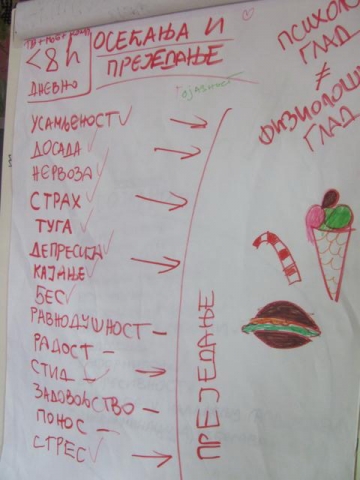 <8h
ДНЕВНО
ОСЕЋАЊА И
ПРЕЈЕДАЊЕ
ПСИХОЛО
ГЛАД
≠
ФИЗИОЛОШ
ГЛАД
УСАМЉЕНОСТ ✓
ДОСАДА ✓
НЕРВОЗА ✓
СТРАХ ✓
ТУГА ✓
ДЕПРЕСИЈА ✓
КАЈАЊЕ ✓
БЕС ✓
РАВНОДУШНОСТ –
РАДОСТ –
СТИД
ЗАДОВОЉСТВО –
ПОНОС –
СТРЕС ✓
ПРЕЈЕДАЊЕ